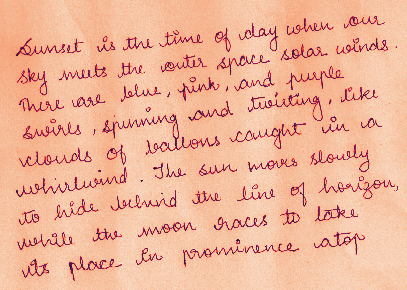 Sunset is the time of day when our
sky meets the outer space solar winds.
There are blue, pink, and purple
swirls, spinning and twisting, like
clouds of balloons caught in a
whirlwind. The sun moves slowly
to hide behind the line of horizon,
while the moon races to take
its place in prominence atop